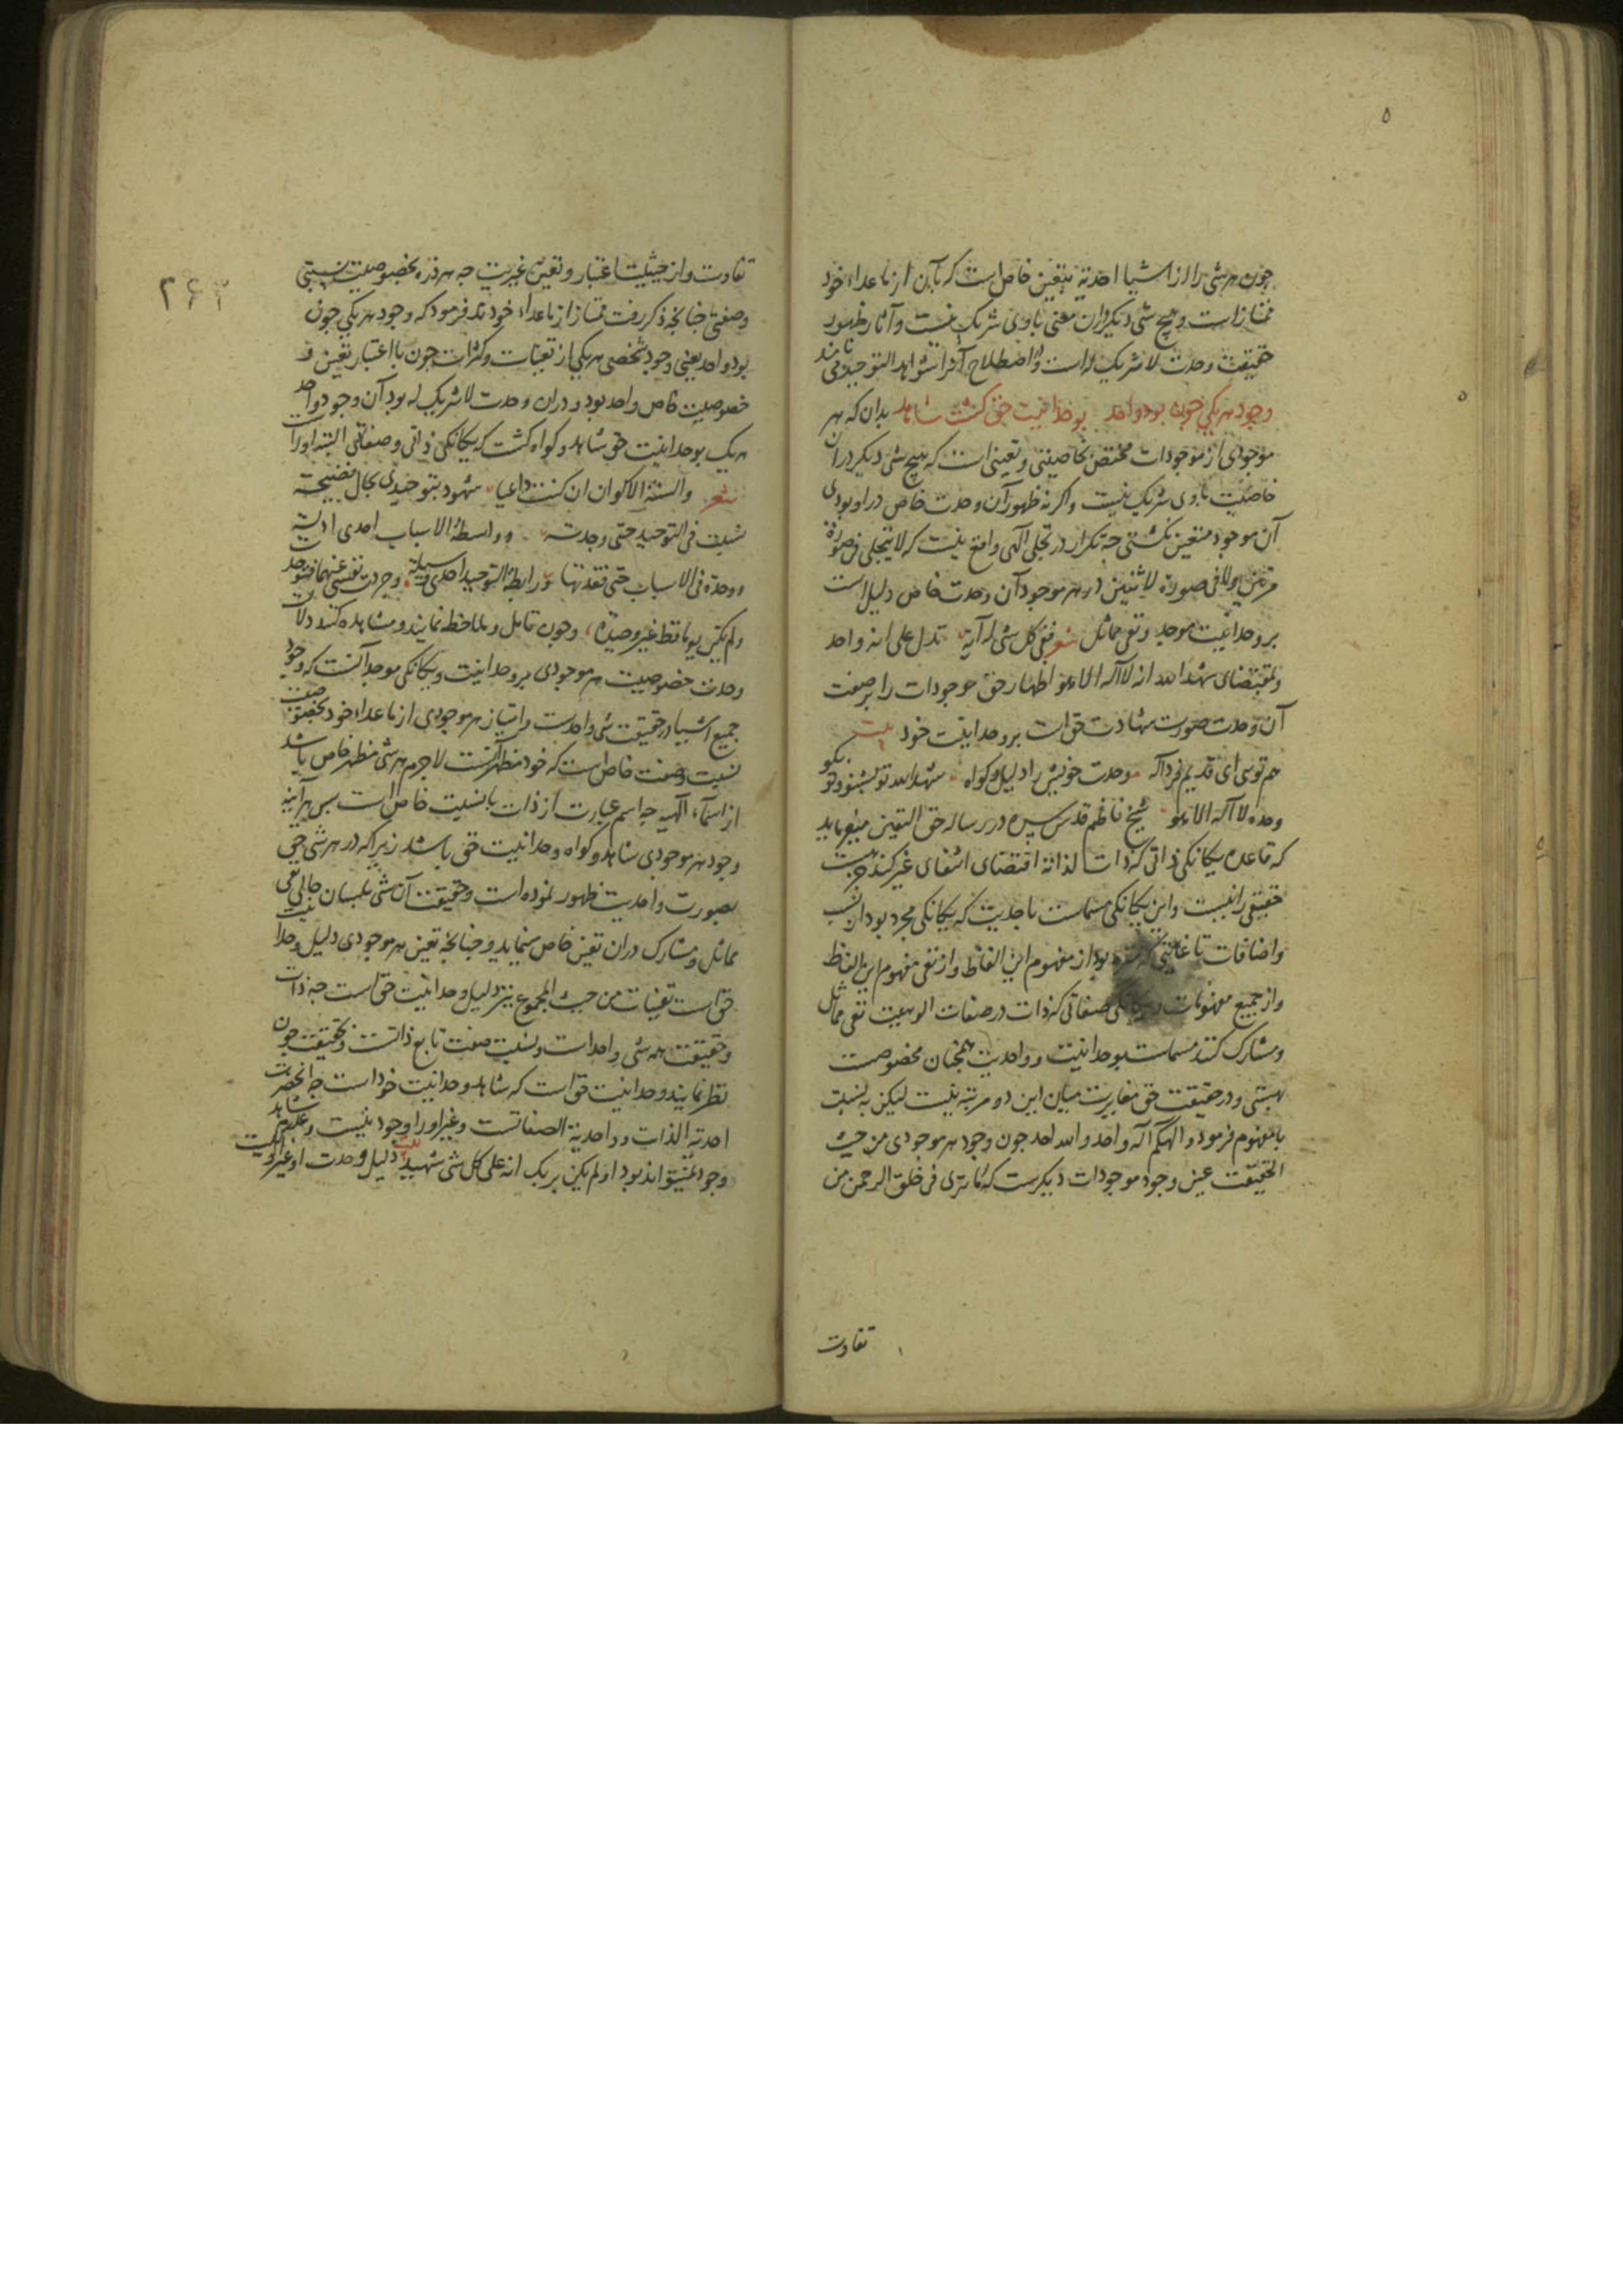 چون هر شی را از اشیا احدیة بتعین خاص است که بآن از ماعداء خود
ممتاز است و هیچ شی دیکر دران معنی با وی شریک نیست و آثار ظهور
حقیقت وحدت لا شریک له است و در اصطلاح آنرا شواهد التوحید می نامند
وجود هر یکی چون بود واحد بوحدانیت حق کشت شاهد بدان که هر
موجودی از موجودات مختص بخاصیتی و تعینی است که هیچ شی دیکر دران
خاصیت با وی شریک نیست و اکر نه ظهور آن وحدت خاص در او بودی
آن موجود متعین نکشتی چه تکرار در تجلی الهی واقع نیست که لا یتجلی فی صورة
مرتین ولا فی صورة لاثنین در هر موجود آن وحدت خاص دلیل است
بر وحدانیت موجد و نفی مماثل شعر ففی کل شی له آیة تدل علی انه واحد
و بمقتضای شهد الله انه لا اله الا هو اظهار حق موجودات را بر صفت
آن وحدت صورت شهادت حق است بر وحدانیت خود بیت
هم توی ای قدیم فرد اله وحدت خویش را دلیل و کواه شهد الله تو بشنو و تو بکو
وحده لا اله الا هو شیخ ناظم قدس سره در رساله حق الیقین میفرماید
که قاعده یکانکی ذاتی که ذات لذاته اقتضای انتفای غیر کند وحدت
حقیقی راست و این یکانکی مسماست باحدیت که یکانکی مجرد بود از نسب
و اضافات تا غایتی که منزه بود از مفهوم این الفاظ و از نفی مفهوم این الفاظ
و از جمیع مفهومات و یکانکی صفاتی که ذات در صفات الوهیت نفی مماثل
و مشارک کند مسماست بوحدانیت و واحدیت همچنان مخصوصست
بهستی و در حقیقت حق مغایرت میان این دو مرتبه نیست لیکن به نسبت
با مفهوم فرمود و الهکم اله واحد والله احد چون وجود هر موجودی من حیث
الحقیقت عین وجود موجودات دیکرست که ما تری فی خلق الرحمن من
تفاوت
۲۶۳
تفاوت و از حیثیت اعتبار و تعین غیریت چه هر ذره بخصوصیت نسبتی
و صفتی چنانچه ذکر رفت ممتاز از ماعداء خودند فرمود که وجود هر یکی چون
بود واحد یعنی وجود شخصی هر یکی از تعینات و کثرات چون با اعتبار تعین و
خصوصیت خاص واحد بود و دران وحدت لا شریک له بود آن وجود واحد
هر یک بوحدانیت حق شاهد و کواه کشت که یکانکی ذاتی و صفاتی البته اوراست
شعر والسنة الاکوان ان کنت داعیا شهود بتوحیدی بحال فصیحة
تسببت فی التوحید حتی وجدته و واسطة الاسباب احدی ادلتی
ووحدت فی الاسباب حتی فقدتها و رابطة التوحید اجدی وسیلة وجردت نفسی عنهما فتوحدت
ولم تک یوما قط غیر وحیدة و چون تامل و ملاحظه نمایند و مشاهده کنند دلالت
وحدت خصوصیت هر موجودی بر وحدانیت و یکانکی موجد آنست که وجود
جمیع اشیا در حقیقت شی واحدست و امتیاز هر موجودی از ماعداء خود بخصوصیت
نسبت و صفت خاص است که خود مظهر آنست لاجرم هر شی مظهر خاص باشد
از اسماء الهیه چه اسم عبارت از ذات با نسبت خاص است پس هر آینه
وجود هر موجودی شاهد و کواه وحدانیت حق باشد زیرا که در هر شی حق
بصورت واحدیت ظهور نموده است و حقیقت آن شی بلسان حالی نفی
مماثل و مشارک دران تعین خاص مینماید و چنانچه تعین هر موجودی دلیل وحدانیت
حق است تعینات من حیث المجموع نیز دلیل وحدانیت حق است چه ذات
و حقیقت همه شی واحداست و نسبت صفت تابع ذاتست و بحقیقت چون
نظر نمایند وحدانیت حق است که شاهد وحدانیت خود است چه آنحضرت
احدیة الذات و واحدیة الصفاتست و غیر او را وجود نیست و عدم شاهد
وجود نمیتواند بود اولم یکف بربک انه علی کل شی شهید بیت دلیل وحدت او غیر او نیست